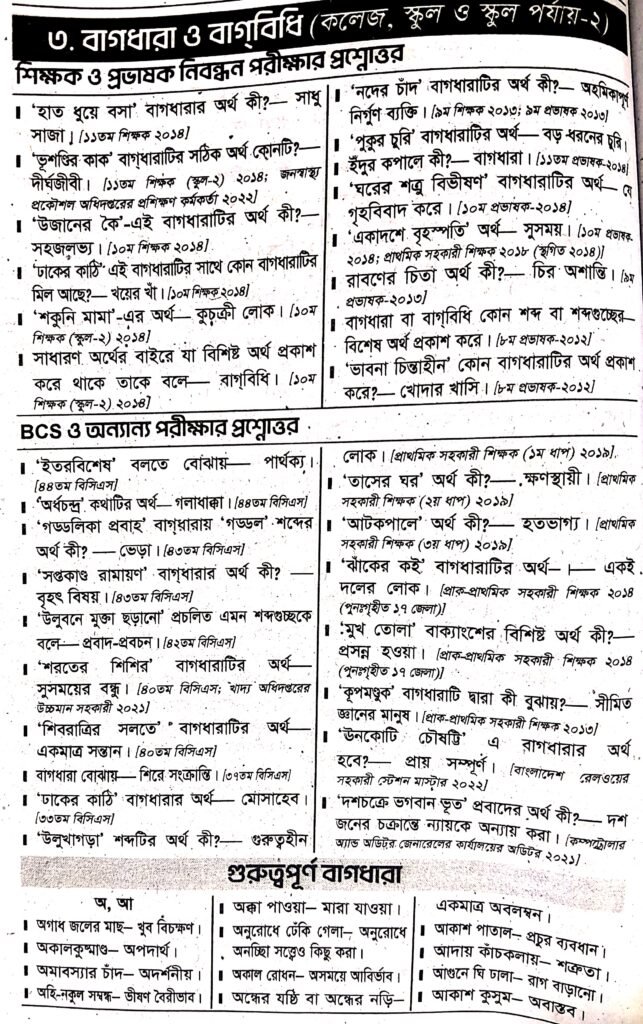 ৩. বাগধারা ও বাগ্‌বিধি (কলেজ, স্কুল ও স্কুল পর্যায়-২)
শিক্ষক ও প্রভাষক নিবন্ধন পরীক্ষার প্রশ্নোত্তর
'হাত ধুয়ে বসা' বাগধারার অর্থ কী?— সাধু
সাজা। [১১তম শিক্ষক ২০১৪]
'ভূশণ্ডির কাক' বাগধারাটির সঠিক অর্থ কোনটি?—
দীর্ঘজীবী। [১১তম শিক্ষক (স্কুল-২) ২০১৪; জনস্বাস্থ্য
প্রকৌশল অধিদপ্তরের প্রশিক্ষণ কর্মকর্তা ২০২২]
'উজানের কৈ'-এই বাগধারাটির অর্থ কী?—
সহজলভ্য। [১০ম শিক্ষক ২০১৪]
'ঢাকের কাঠি' এই বাগধারাটির সাথে কোন বাগধারাটির
মিল আছে?— খয়ের খাঁ। [১০ম শিক্ষক ২০১৪]
'শকুনি মামা'-এর অর্থ— কুচক্রী লোক। [১০ম
শিক্ষক (স্কুল-২) ২০১৪]
সাধারণ অর্থের বাইরে যা বিশিষ্ট অর্থ প্রকাশ
করে থাকে তাকে বলে— বাগ্‌বিধি। [১০ম
শিক্ষক (স্কুল-২) ২০১৪]
'নদের চাঁদ' বাগধারাটির অর্থ কী?— অহমিকাপূর্ণ
নির্গুণ ব্যক্তি। [৯ম শিক্ষক ২০১৩; ৯ম প্রভাষক ২০১৩]
'পুকুর চুরি' বাগধারাটির অর্থ— বড় ধরনের চুরি।
ইঁদুর কপালে কী?— বাগধারা। [১১তম প্রভাষক-২০১৪]
'ঘরের শত্রু বিভীষণ' বাগধারাটির অর্থ— যে
গৃহবিবাদ করে। [১০ম প্রভাষক-২০১৪]
'একাদশে বৃহস্পতি' অর্থ— সুসময়। [১০ম প্রভাষক-
২০১৪; প্রাথমিক সহকারী শিক্ষক ২০১৮ (স্থগিত ২০১৪)]
রাবণের চিতা অর্থ কী?— চির অশান্তি। [৯ম
প্রভাষক-২০১৩]
বাগধারা বা বাগ্‌বিধি কোন শব্দ বা শব্দগুচ্ছের—
বিশেষ অর্থ প্রকাশ করে। [৮ম প্রভাষক-২০১২]
'ভাবনা চিন্তাহীন' কোন বাগধারাটির অর্থ প্রকাশ
করে?— খোদার খাসি। [৮ম প্রভাষক-২০১২]
BCS ও অন্যান্য পরীক্ষার প্রশ্নোত্তর
'ইতরবিশেষ' বলতে বোঝায়— পার্থক্য।
[৪৪তম বিসিএস]
'অর্ধচন্দ্র' কথাটির অর্থ— গলাধাক্কা। [৪৪তম বিসিএস]
'গড্ডলিকা প্রবাহ' বাগ্‌ধারায় 'গড্ডল' শব্দের
অর্থ কী? — ভেড়া। [৪৩তম বিসিএস]
'সপ্তকাণ্ড রামায়ণ' বাগ্‌ধারার অর্থ কী? —
বৃহৎ বিষয়। [৪৩তম বিসিএস]
'উলুবনে মুক্তা ছড়ানো' প্রচলিত এমন শব্দগুচ্ছকে
বলে— প্রবাদ-প্রবচন। [৪২তম বিসিএস]
'শরতের শিশির' বাগধারাটির অর্থ—
সুসময়ের বন্ধু। [৪০তম বিসিএস; খাদ্য অধিদপ্তরের
উচ্চমান সহকারী ২০২১]
'শিবরাত্রির সলতে' বাগধারাটির অর্থ—
একমাত্র সন্তান। [৪০তম বিসিএস]
বাগধারা বোঝায়— শিরে সংক্রান্তি। [৩৭তম বিসিএস]
'ঢাকের কাঠি' বাগধারার অর্থ— মোসাহেব।
[৩৩তম বিসিএস]
'উলুখাগড়া' শব্দটির অর্থ কী?— গুরুত্বহীন
লোক। [প্রাথমিক সহকারী শিক্ষক (১ম ধাপ) ২০১৯]
'তাসের ঘর' অর্থ কী?— ক্ষণস্থায়ী। [প্রাথমিক
সহকারী শিক্ষক (২য় ধাপ) ২০১৯]
'আটকপালে' অর্থ কী?— হতভাগ্য। [প্রাথমিক
সহকারী শিক্ষক (৩য় ধাপ) ২০১৯]
'ঝাঁকের কই' বাগধারাটির অর্থ— একই
দলের লোক। [প্রাক-প্রাথমিক সহকারী শিক্ষক ২০১৪
(পুনঃগৃহীত ১৭ জেলা)]
'মুখ তোলা' বাক্যাংশের বিশিষ্ট অর্থ কী?—
প্রসন্ন হওয়া। [প্রাক-প্রাথমিক সহকারী শিক্ষক ২০১৪
(পুনঃগৃহীত ১৭ জেলা)]
'কূপমণ্ডুক' বাগধারাটি দ্বারা কী বুঝায়?— সীমিত
জ্ঞানের মানুষ। [প্রাক-প্রাথমিক সহকারী শিক্ষক ২০১৩]
'ঊনকোটি চৌষট্টি' এ বাগধারার অর্থ
হবে?— প্রায় সম্পূর্ণ। [বাংলাদেশ রেলওয়ের
সহকারী স্টেশন মাস্টার ২০২২]
'দশচক্রে ভগবান ভূত' প্রবাদের অর্থ কী?— দশ
জনের চক্রান্তে ন্যায়কে অন্যায় করা। [কম্পট্রোলার
অ্যান্ড অডিটর জেনারেলের কার্যালয়ের অডিটর ২০২১]
গুরুত্বপূর্ণ বাগধারা
অ, আ
অগাধ জলের মাছ— খুব বিচক্ষণ।
অকালকুষ্মাণ্ড— অপদার্থ।
অমাবস্যার চাঁদ— অদর্শনীয়।
অহি-নকুল সম্বন্ধ— ভীষণ বৈরীভাব।
অক্কা পাওয়া— মারা যাওয়া।
অনুরোধে ঢেঁকি গেলা— অনুরোধে
অনিচ্ছা সত্ত্বেও কিছু করা।
অকাল বোধন— অসময়ে আবির্ভাব।
অন্ধের যষ্ঠি বা অন্ধের নড়ি—
একমাত্র অবলম্বন।
আকাশ পাতাল— প্রচুর ব্যবধান।
আদায় কাঁচকলায়— শত্রুতা।
আগুনে ঘি ঢালা— রাগ বাড়ানো।
আকাশ কুসুম— অবাস্তব।